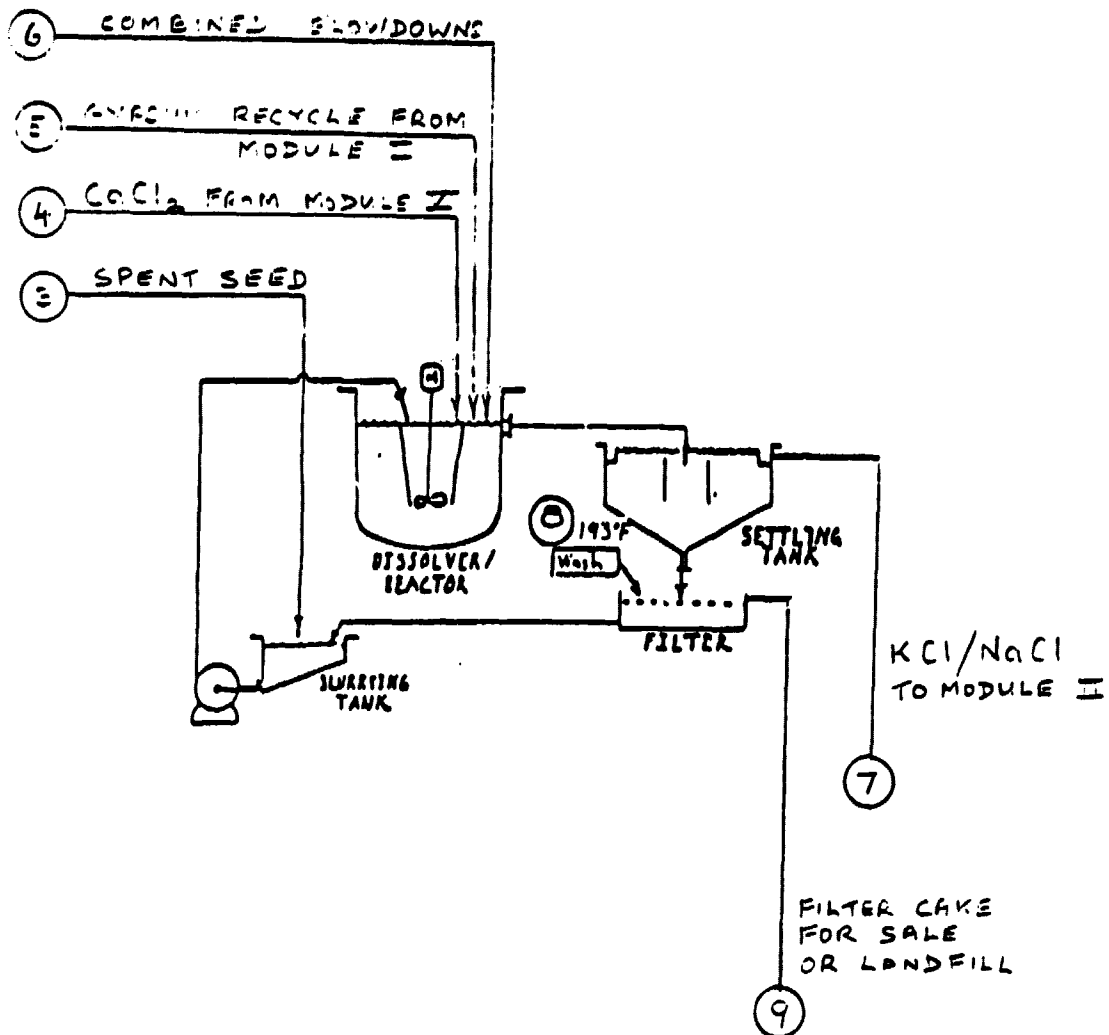 6 COMBINED BLOWDOWNS
RECYCLE FROM
MODULE
4 CaCl₂ FROM MODULE
SPENT SEED
193°F
Wash
DISSOLVER/
REACTOR
SETTLING
TANK
FILTER
SLURRYING
TANK
KCl/NaCl
TO MODULE II
7
FILTER CAKE
FOR SALE
OR LANDFILL
9